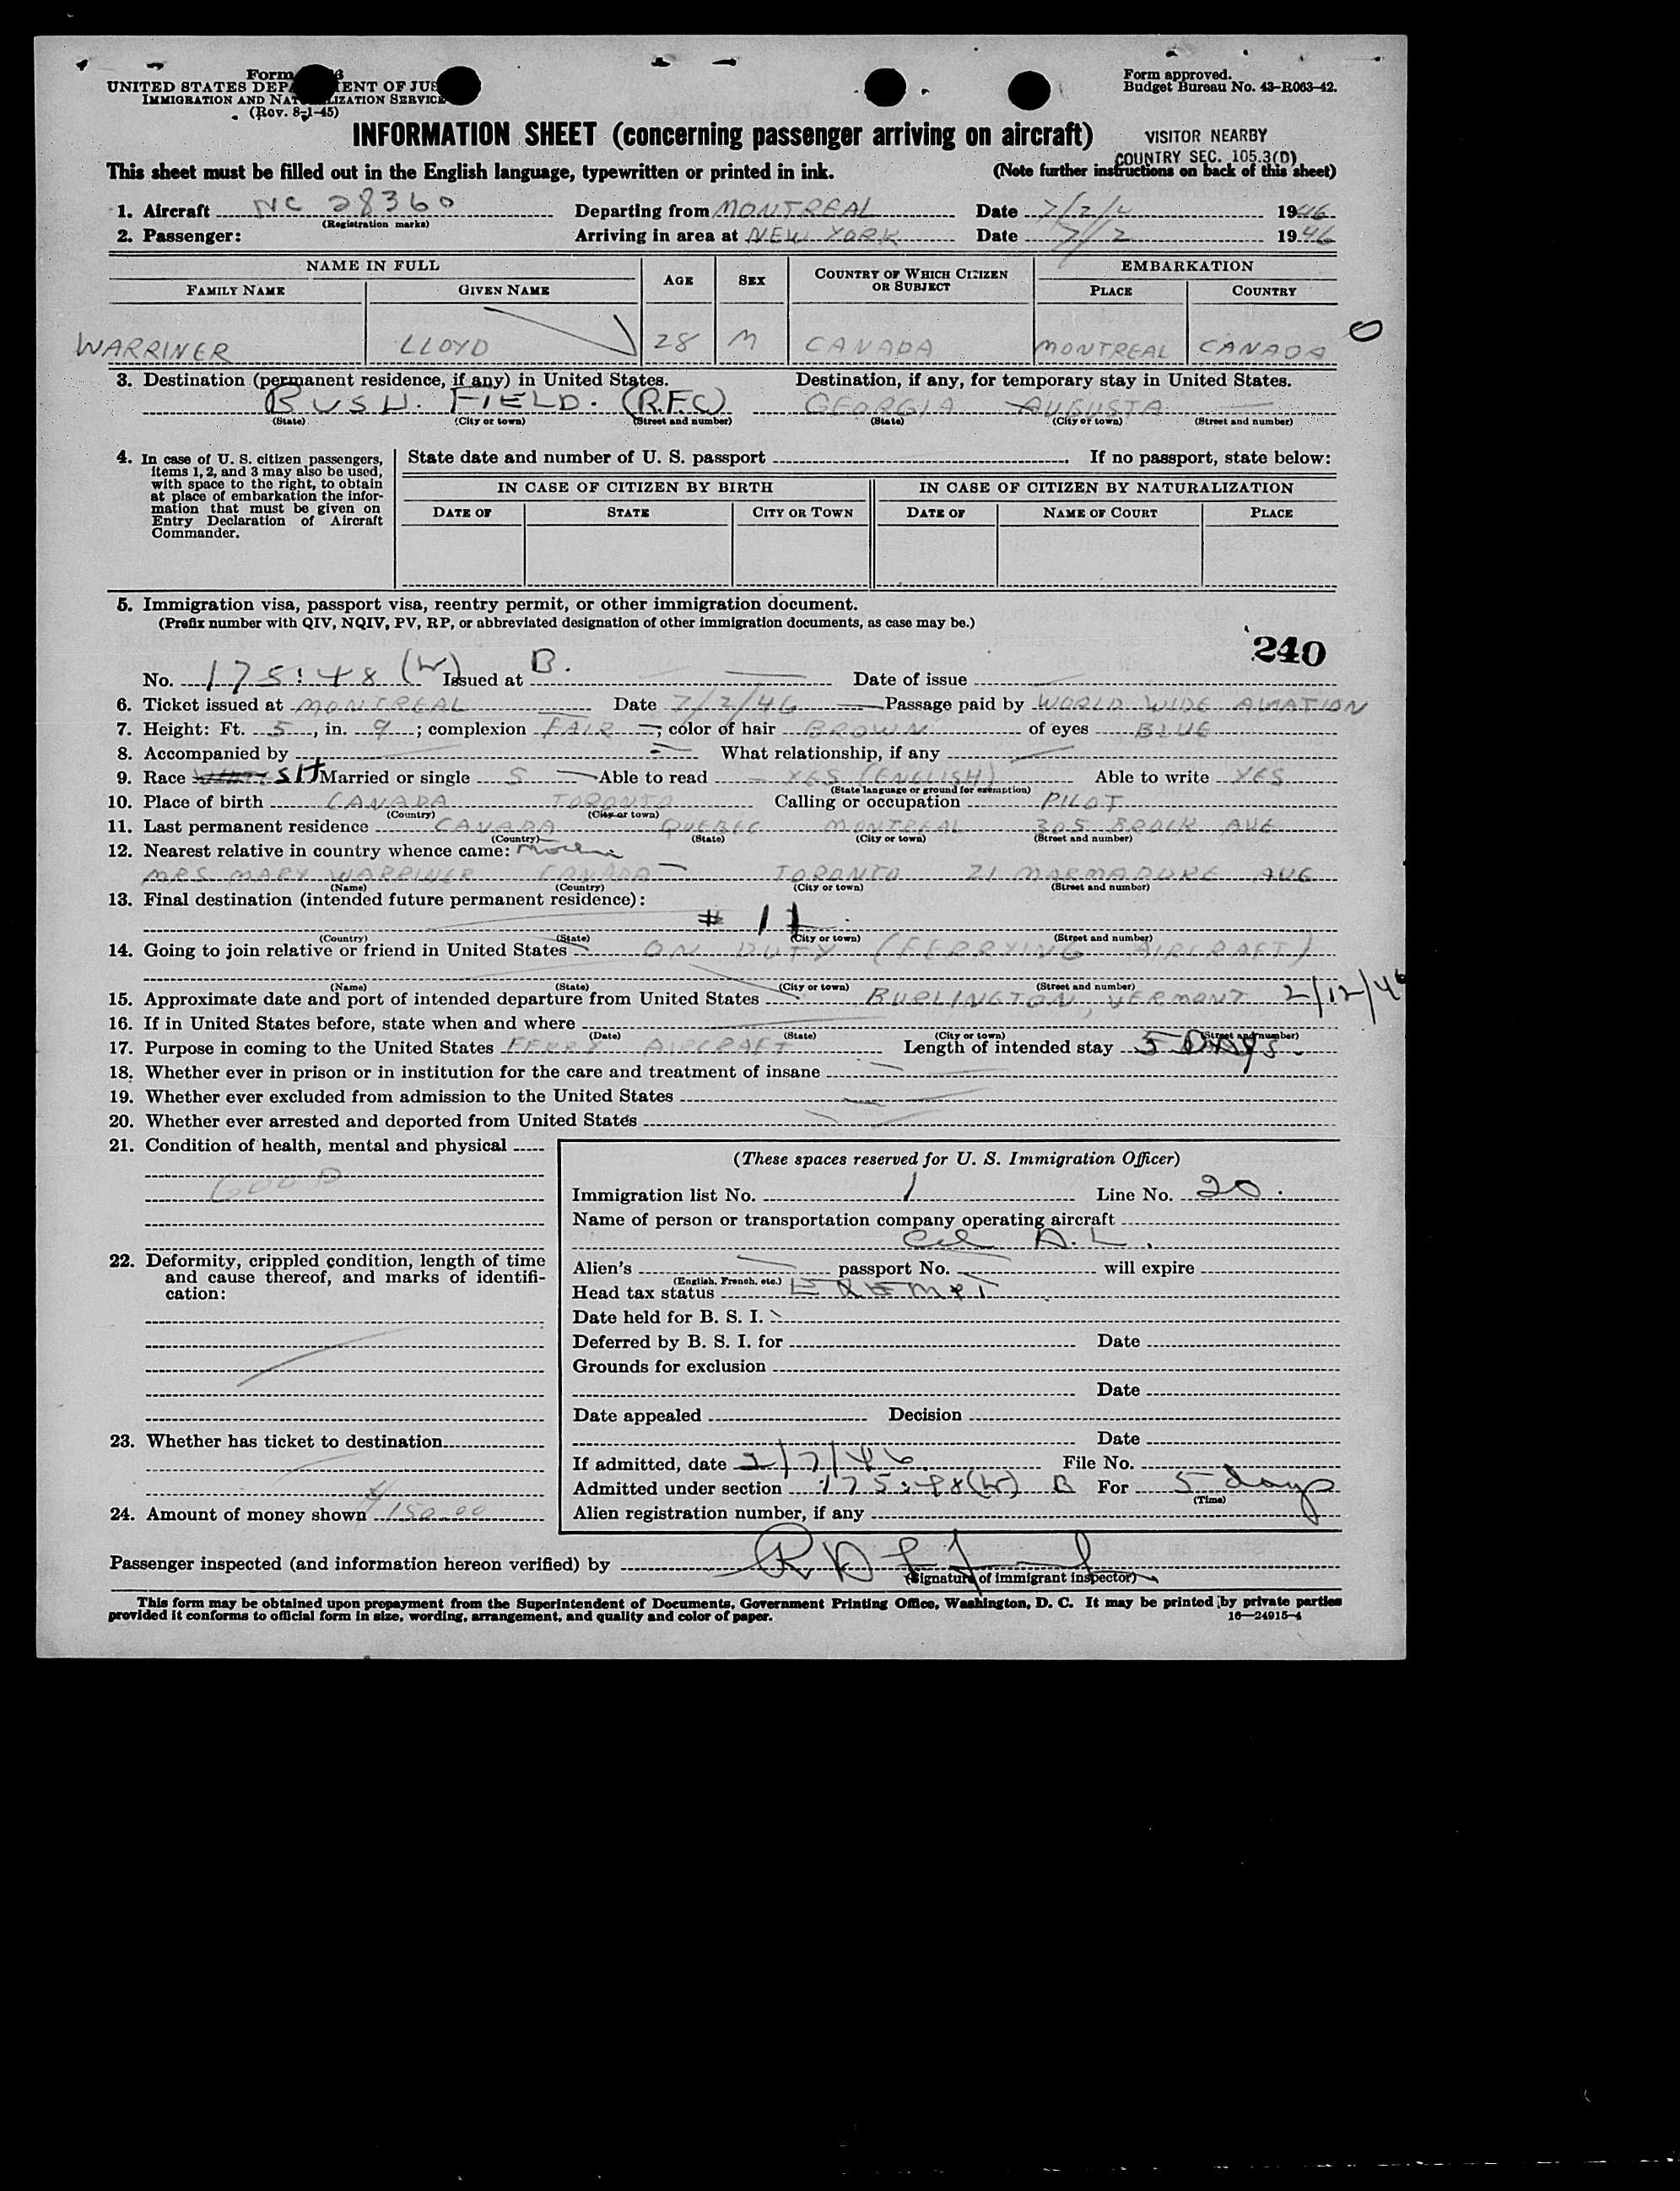 Form
UNITED STATES DEPARTMENT OF JUS
IMMIGRATION AND NATURALIZATION SERVICE
(Rev. 8-1-45)
Form approved.
Budget Bureau No. 43-R063-42.
INFORMATION SHEET (concerning passenger arriving on aircraft)
VISITOR NEARBY
COUNTRY SEC. 105.3(D)
This sheet must be filled out in the English language, typewritten or printed in ink. (Note further instructions on back of this sheet)
1. Aircraft NC 28360 Departing from MONTREAL Date 7/2/ 1946
(Registration marks)
2. Passenger: Arriving in area at NEW YORK Date 7/2 1946
NAME IN FULL AGE SEX COUNTRY OF WHICH CITIZEN OR SUBJECT EMBARKATION
FAMILY NAME GIVEN NAME PLACE COUNTRY
WARRINER LLOYD 28 M CANADA MONTREAL CANADA
3. Destination (permanent residence, if any) in United States. Destination, if any, for temporary stay in United States.
BUSH. FIELD. (R.F.C) GEORGIA AUGUSTA
(State) (City or town) (Street and number) (State) (City or town) (Street and number)
4. In case of U. S. citizen passengers, items 1, 2, and 3 may also be used, with space to the right, to obtain at place of embarkation the information that must be given on Entry Declaration of Aircraft Commander.
State date and number of U. S. passport If no passport, state below:
IN CASE OF CITIZEN BY BIRTH IN CASE OF CITIZEN BY NATURALIZATION
DATE OF STATE CITY OR TOWN DATE OF NAME OF COURT PLACE
5. Immigration visa, passport visa, reentry permit, or other immigration document.
(Prefix number with QIV, NQIV, PV, RP, or abbreviated designation of other immigration documents, as case may be.)
240
No. 175:48 (W) Issued at B. Date of issue
6. Ticket issued at MONTREAL Date 7/2/46 Passage paid by WORLD WIDE AVIATION
7. Height: Ft. 5, in. 9; complexion FAIR; color of hair BROWN of eyes BLUE
8. Accompanied by What relationship, if any
9. Race Married or single S Able to read YES (ENGLISH) Able to write YES
(State language or ground for exemption)
10. Place of birth CANADA TORONTO Calling or occupation PILOT
(Country) (City or town)
11. Last permanent residence CANADA QUEBEC MONTREAL 305 BROCK AVE
(Country) (State) (City or town) (Street and number)
12. Nearest relative in country whence came: Mother
MRS MARY WARRINER CANADA TORONTO 21 MARMADUKE AVE
(Name) (Country) (City or town) (Street and number)
13. Final destination (intended future permanent residence):
# 11
(Country) (State) (City or town) (Street and number)
14. Going to join relative or friend in United States ON DUTY (FERRYING AIRCRAFT)
(Name) (State) (City or town) (Street and number)
15. Approximate date and port of intended departure from United States BURLINGTON, VERMONT 2/12/46
16. If in United States before, state when and where
(Date) (State) (City or town) (Street and number)
17. Purpose in coming to the United States FERRY AIRCRAFT Length of intended stay 5 Days.
18. Whether ever in prison or in institution for the care and treatment of insane
19. Whether ever excluded from admission to the United States
20. Whether ever arrested and deported from United States
21. Condition of health, mental and physical
GOOD
22. Deformity, crippled condition, length of time and cause thereof, and marks of identification:
23. Whether has ticket to destination
24. Amount of money shown 150.00
(These spaces reserved for U. S. Immigration Officer)
Immigration list No. 1 Line No. 20.
Name of person or transportation company operating aircraft
A. L.
Alien's passport No. will expire
(English, French, etc.)
Head tax status EXEMPT
Date held for B. S. I.
Deferred by B. S. I. for Date
Grounds for exclusion
Date
Date appealed Decision
Date
If admitted, date 2/7/46 File No.
Admitted under section 175:48(W) B For 5 days
(Time)
Alien registration number, if any
Passenger inspected (and information hereon verified) by
(Signature of immigrant inspector)
This form may be obtained upon prepayment from the Superintendent of Documents, Government Printing Office, Washington, D. C. It may be printed by private parties
provided it conforms to official form in size, wording, arrangement, and quality and color of paper. 16—24915-4